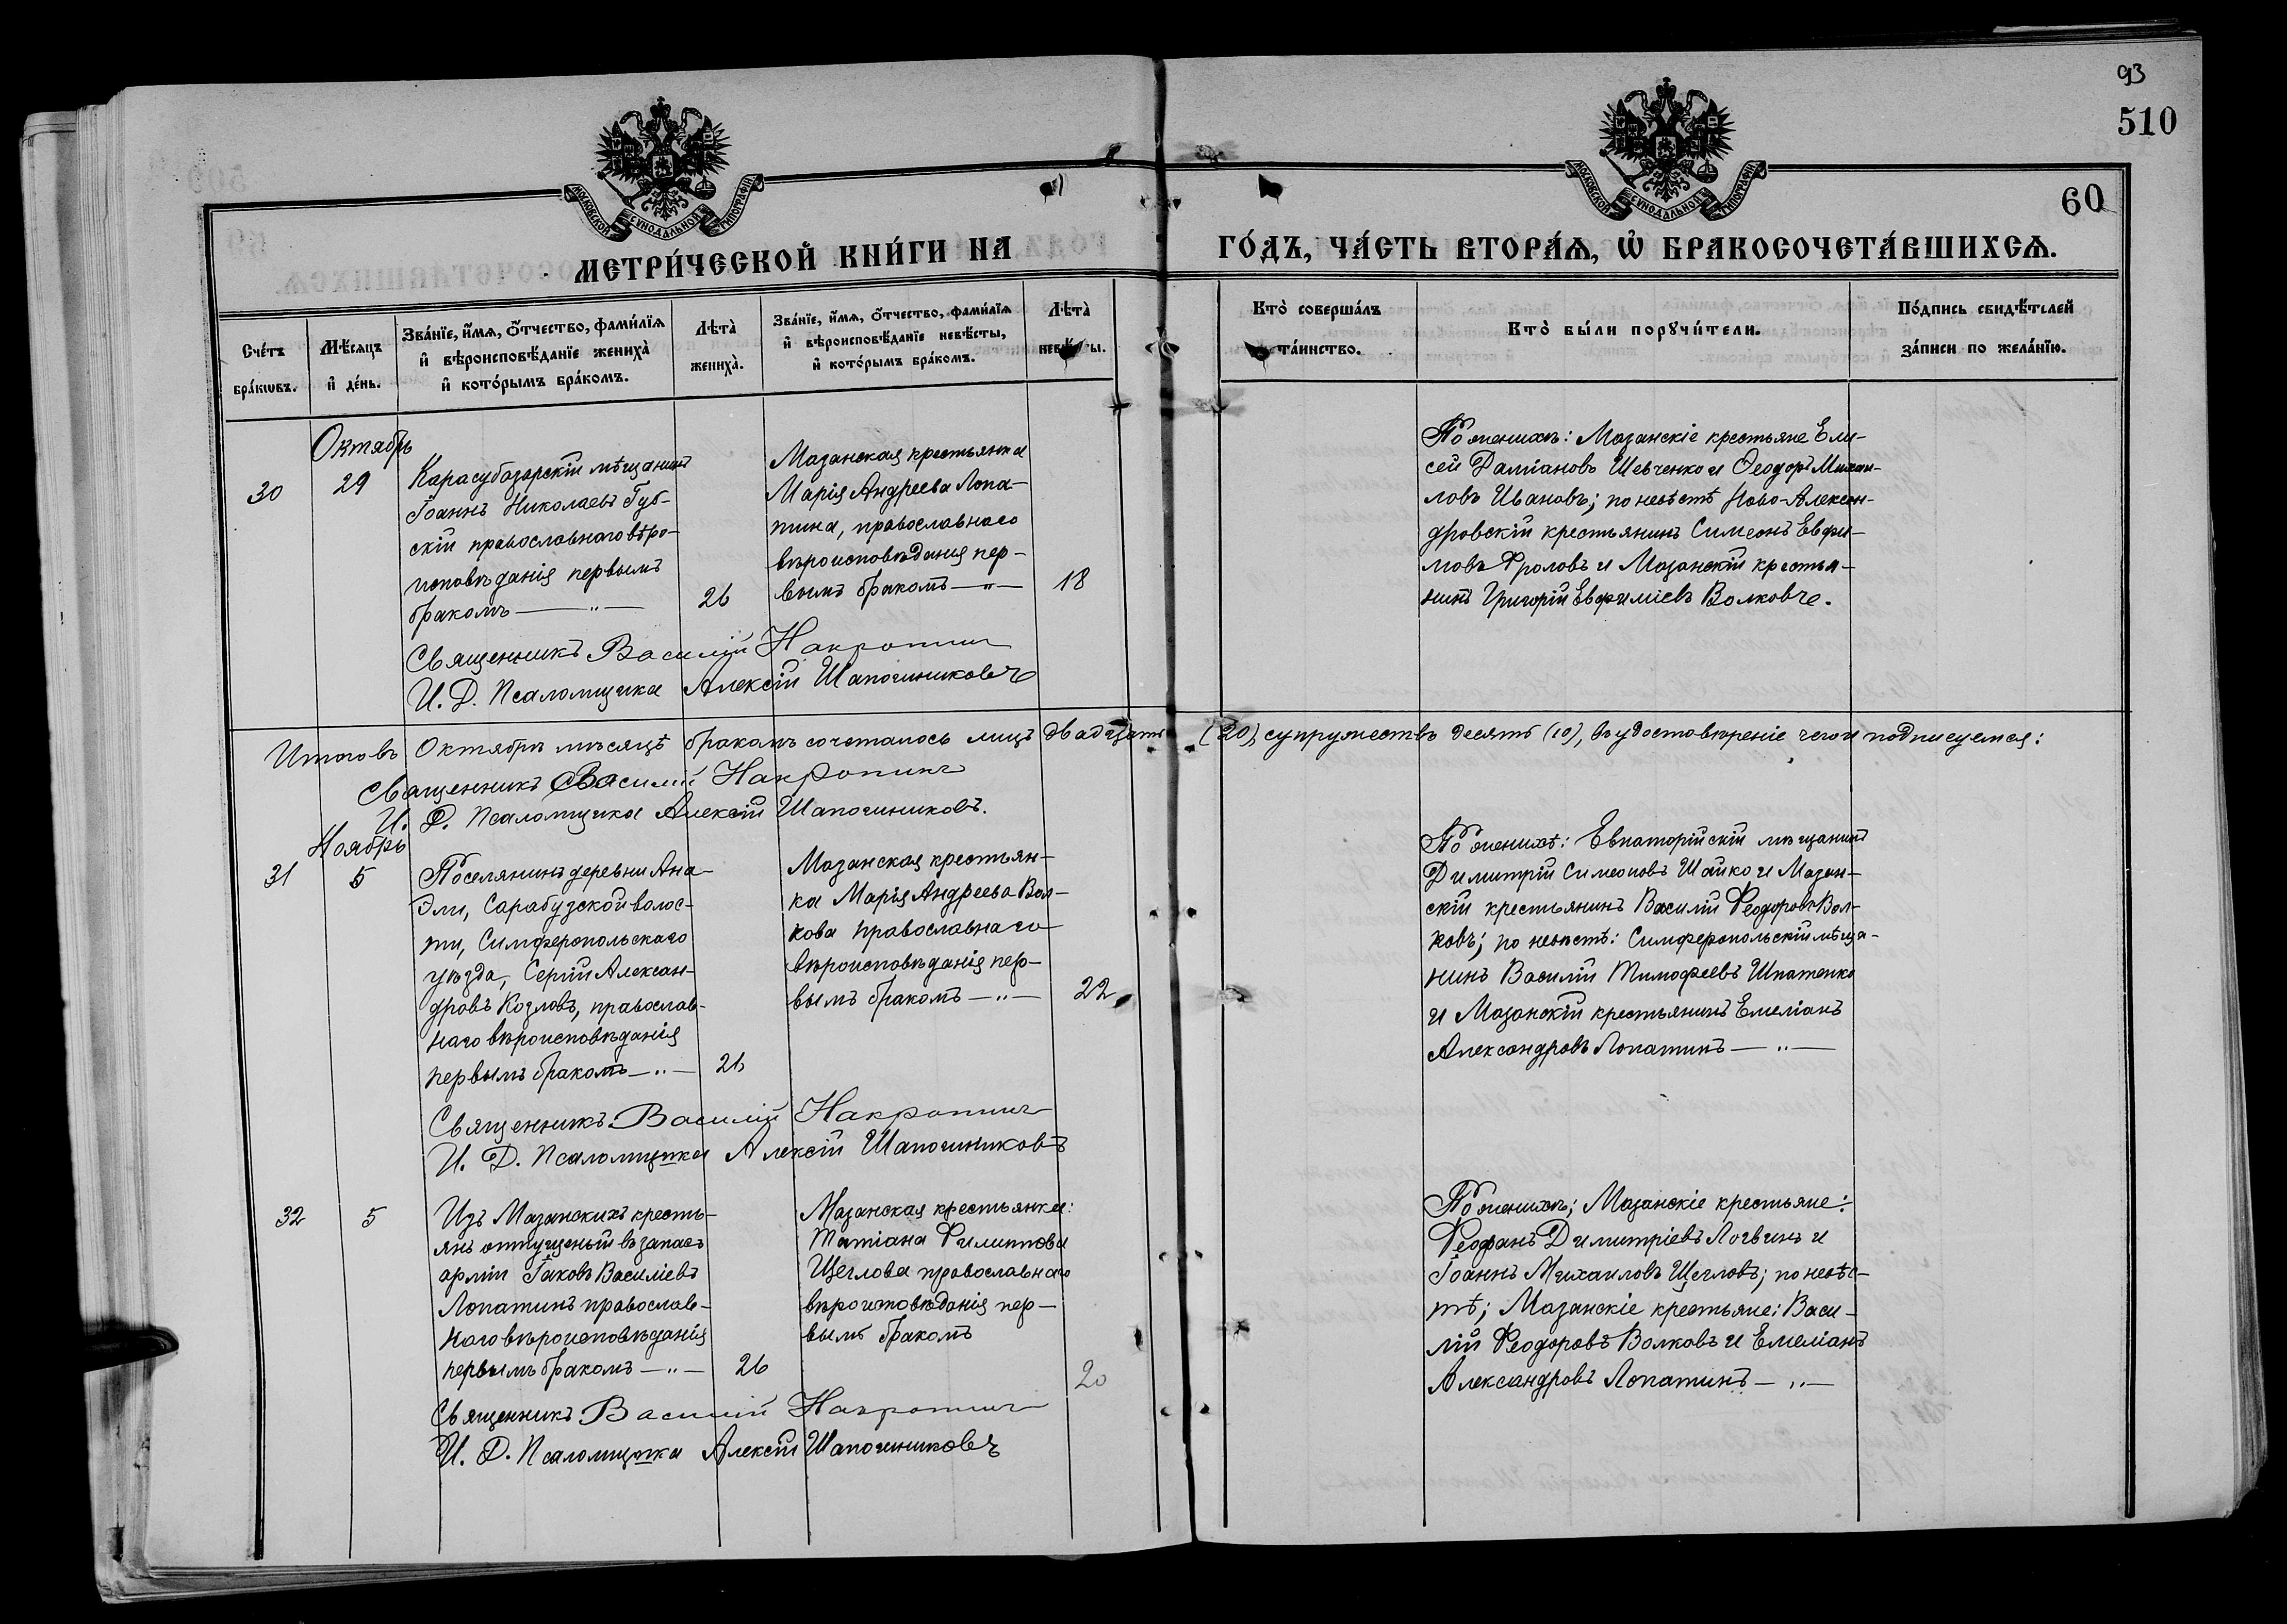 93
510
60
МОСКОВСКОЙ СУНОДАЛЬНОЙ ТИПОГРАФІИ
МОСКОВСКОЙ СУНОДАЛЬНОЙ ТИПОГРАФІИ
МЕТРИ́ЧЕСКОЙ КНИ́ГИ НА
ГО́ДЪ, ЧА́СТЬ ВТОРА́Ѧ, Ѡ҆ БРАКОСОЧЕТА́ВШИХСѦ.
Сче́тъ
бра́кѡвъ.
Мѣ́сѧцъ
и҆ де́нь.
Зва́нїе, и҆́мѧ, ѻ҆́тчество, фами́лїѧ
и҆ вѣроисповѣ́данїе жениха̀
и҆ кото́рымъ бра́комъ.
Лѣта̀
жениха̀.
Зва́нїе, и҆́мѧ, ѻ҆́тчество, фами́лїѧ
и҆ вѣроисповѣ́данїе невѣ́сты,
и҆ кото́рымъ бра́комъ.
Лѣта̀
невѣ́сты.
Кто̀ соверша́лъ
та́инство.
Кто̀ бы́ли порꙋчи́тели.
По́дпись свидѣ́телей
за́писи по жела́нїю.
Октябрь
30
29
Карасубазарскій мѣщанинъ
Іоаннъ Николаевъ Губ-
скій православнаго вѣро-
исповѣданія первымъ
бракомъ — „ —
26
Мазанская крестьянка
Марія Андреева Лопа-
тина, православнаго
вѣроисповѣданія пер-
вымъ бракомъ — „ —
18
По женихѣ: Мазанскіе крестьяне Ели-
сей Даміановъ Шевченко и Ѳеодоръ Михаи-
ловъ Ивановъ; по невѣстѣ Ново-Алексан-
дровскій крестьянинъ Симеонъ Евфи-
мовъ Фроловъ и Мазанскій крестья-
нинъ Григорій Евфиміевъ Волковъ.
Священникъ Василій Накропинъ
И. Д. Псаломщика Алексій Шапошниковъ
Итого въ Октябрѣ мѣсяцѣ бракомъ сочеталось лицъ двадцать (20), супружествъ десять (10), въ удостовѣреніе чего и подписуемся:
Священникъ Василій Накропинъ
И. Д. Псаломщика Алексій Шапошниковъ.
Ноябрь
31
5
Поселянинъ деревни Ана-
Эли, Сарабузской волос-
ти, Симферопольскаго
уѣзда, Сергій Алексан-
дровъ Козловъ, православ-
наго вѣроисповѣданія
первымъ бракомъ — „ —
26
Мазанская крестьян-
ка Марія Андреева Вол-
кова православнаго
вѣроисповѣданія пер-
вымъ бракомъ — „ —
22
По женихѣ: Евпаторійскій мѣщанинъ
Димитрій Симеоновъ Шайко и Мазан-
скій крестьянинъ Василій Ѳеодоровъ Вол-
ковъ; по невѣстѣ: Симферопольскій мѣща-
нинъ Василій Тимофеевъ Шпатенко
и Мазанскій крестьянинъ Емеліанъ
Александровъ Лопатинъ — „ —
Священникъ Василій Накропинъ
И. Д. Псаломщика Алексій Шапошниковъ
32
5
Изъ Мазанскихъ кресть-
янъ отпущеный въ запасъ
арміи Іаковъ Василіевъ
Лопатинъ православ-
наго вѣроисповѣданія
первымъ бракомъ — „ —
26
Мазанская крестьянка:
Татіана Филиппова
Щеглова православнаго
вѣроисповѣданія пер-
вымъ бракомъ
20
По женихѣ; Мазанскіе крестьяне:
Ѳеофанъ Димитріевъ Логвинъ и
Іоаннъ Михаиловъ Щегловъ; по невѣс-
тѣ; Мазанскіе крестьяне: Васи-
лій Ѳеодоровъ Волковъ и Емеліанъ
Александровъ Лопатинъ — „ —
Священникъ Василій Накропинъ
И. Д. Псаломщика Алексій Шапошниковъ